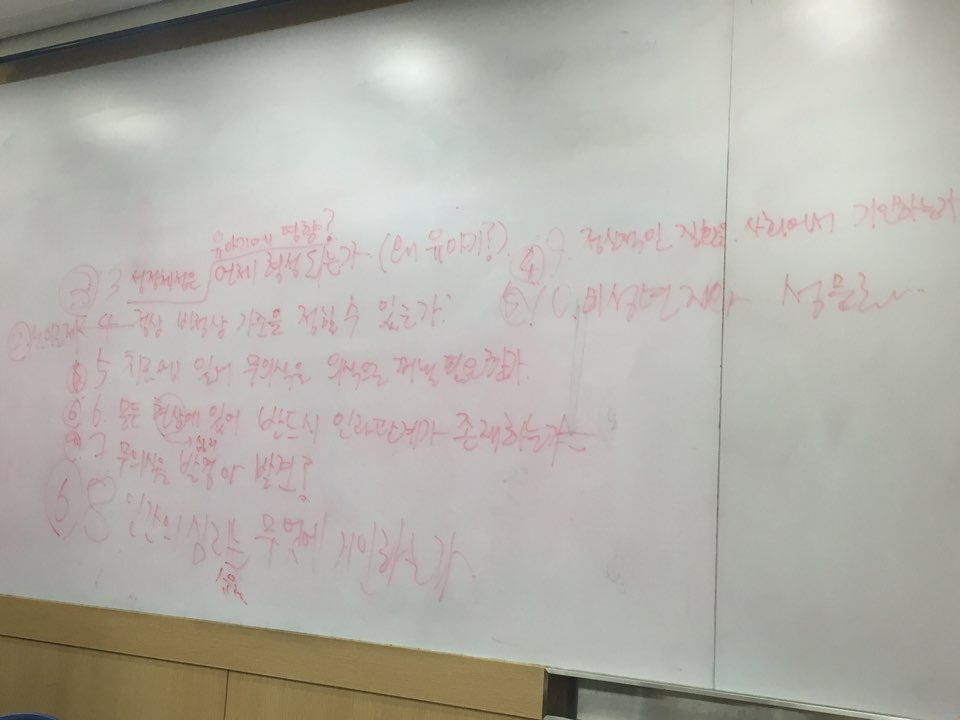 유아기에 영향?
③ 3 성정체성은 언제 형성되는가 (왜 유아기?)
② 4 정상 비정상 기준을 정할 수 있는가?
5. 치료에 있어 무의식을 의식으로 꺼낼 필요할까.
⑥ 6. 모든 현상에 있어 반드시 인과관계가 존재하는가
심리
7 무의식은 발명이냐 발견?
8 인간의 심리는 무엇에 기인하는가
④ 9. 정신적인 질환은 사회에서 기인하는가
⑤ 10. 미성년자